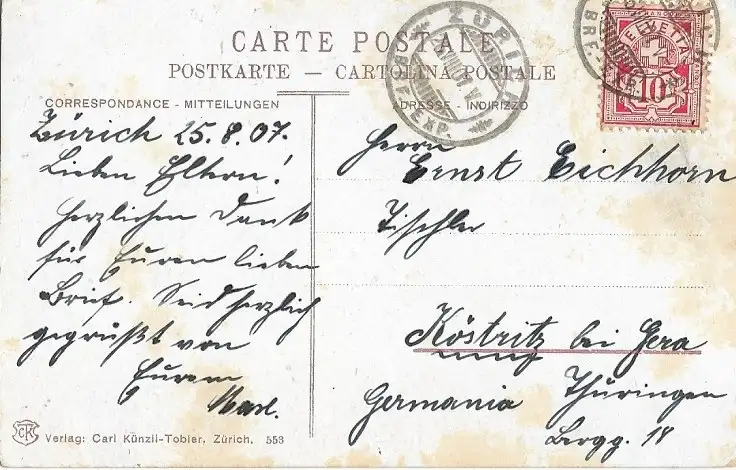 CARTE POSTALE
POSTKARTE — CARTOLINA POSTALE
CORRESPONDANCE - MITTEILUNGEN
ADRESSE - INDIRIZZO
ZÜRICH
BRF. EXP.
HELVETIA
10
Zürich 25.8.07.
Lieben Eltern!
Herzlichen Dank
für Euren lieben
Brief. Seid herzlich
gegrüßt von
Eurem
Herrn
Ernst Eichhorn
Tischler
Köstritz bei Gera
Thüringen
Germania
Bergg. 18
CK
Verlag: Carl Künzli-Tobler, Zürich. 553